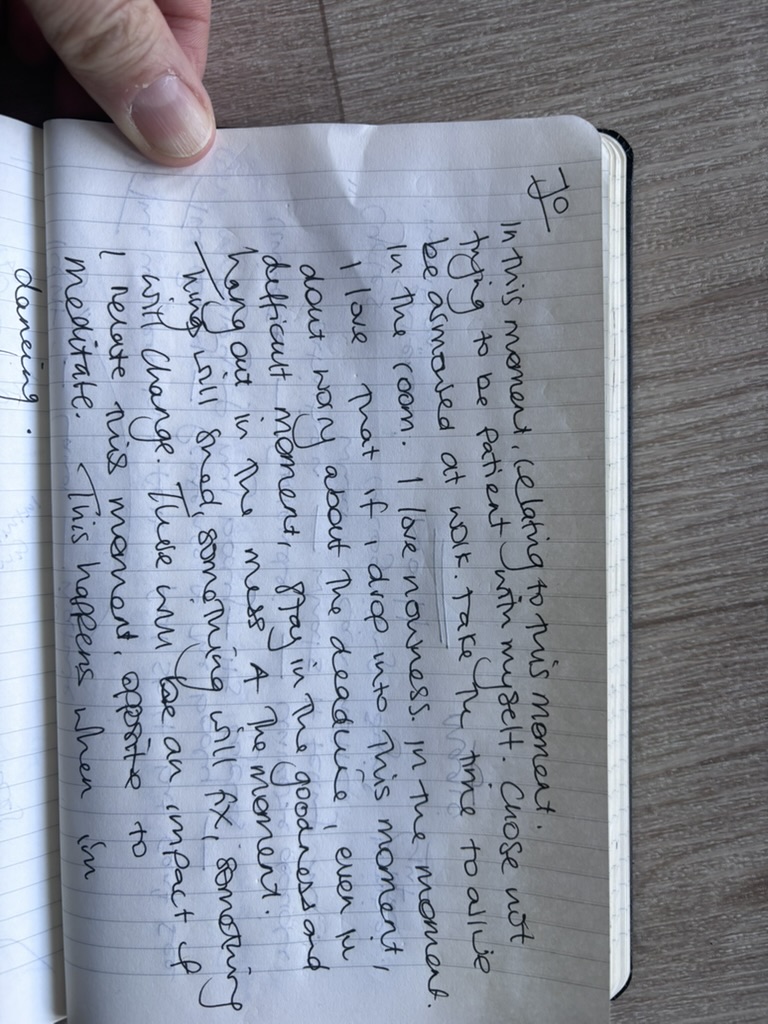 Jo
In this moment, relating to this moment.
trying to be patient with myself. Chose not
be armored at work. Take the time to arrive
in the room. I love nowness. In the moment.
I love that if i drop into this moment,
dont worry about the deadline, even in
difficult moment, stay in the goodness and
hang out in the mess & the moment.
Things will shed, something will fix, something
will change. There will be an impact
I relate this moment, opposite to
meditate. This happens when im
dancing.